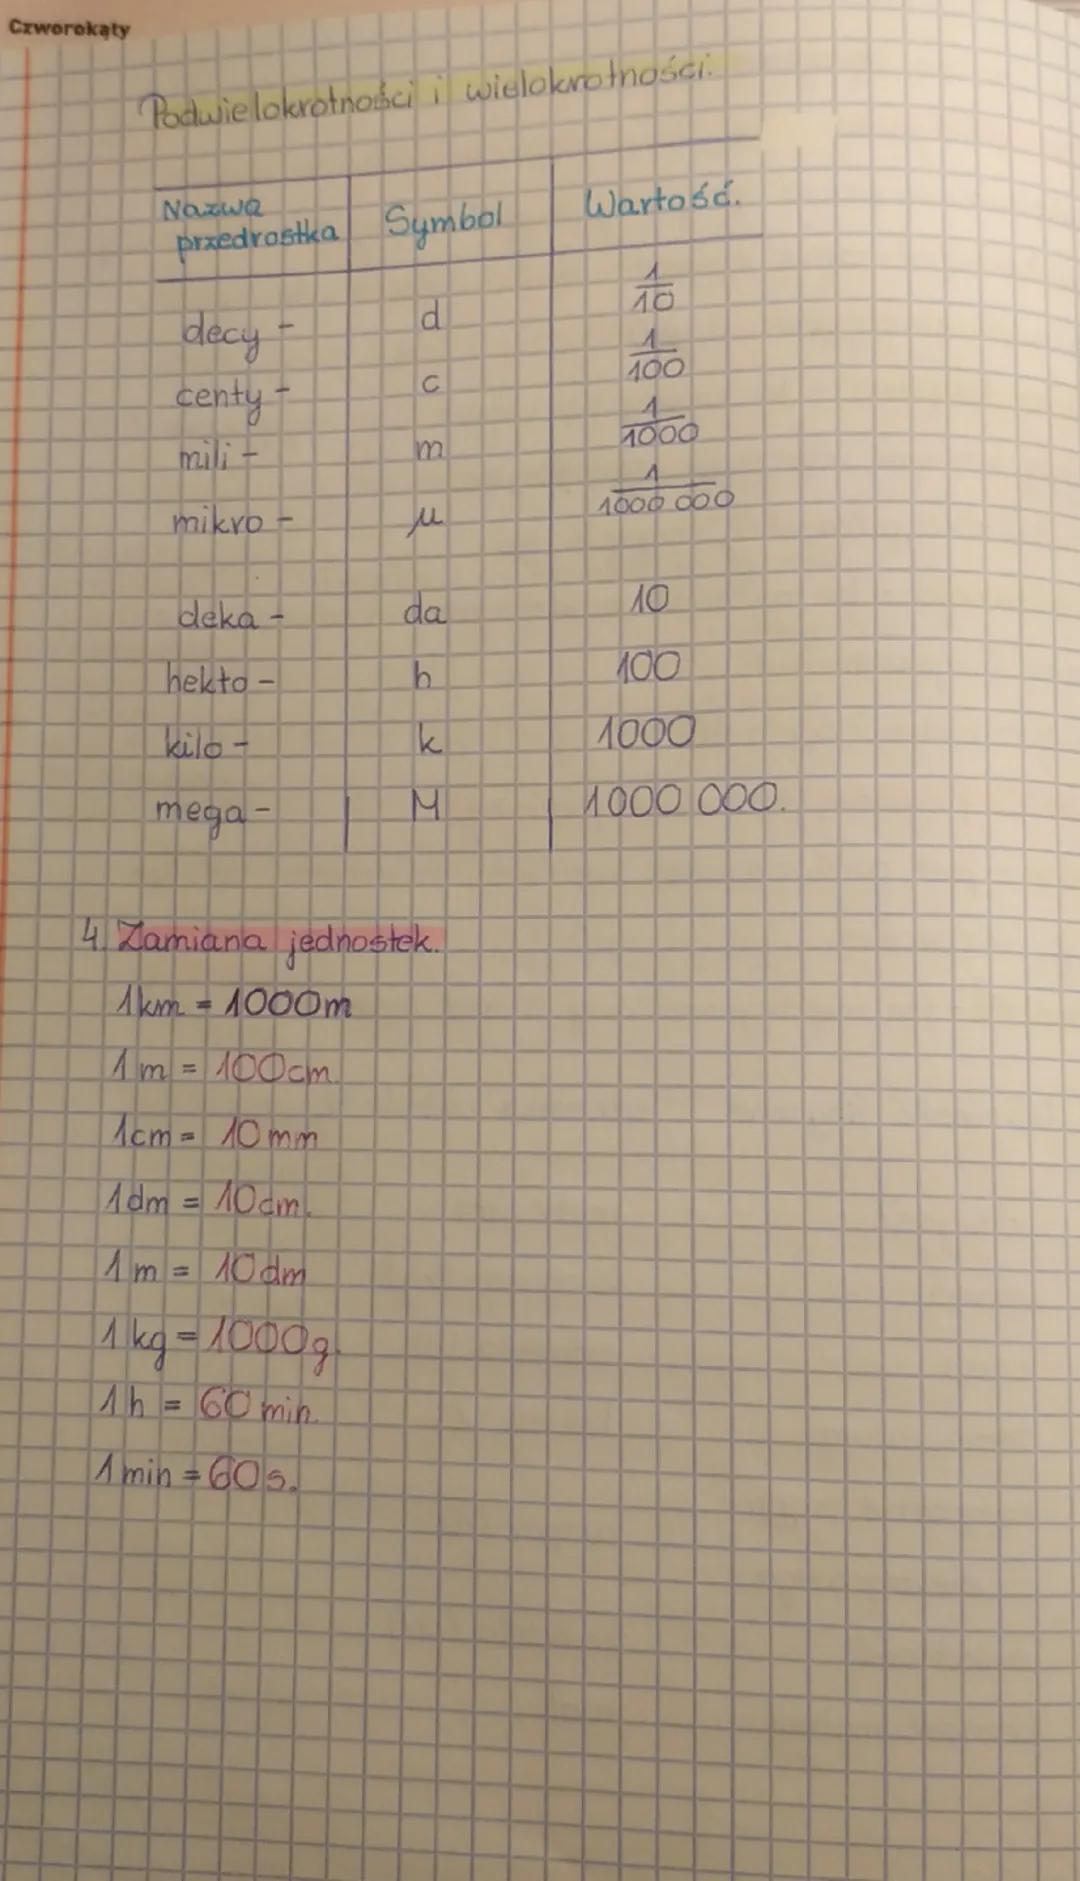 Czworokąty
Podwielokrotności i wielokrotności.
Nazwa przedrostka Symbol Wartość.
decy - d 1/10
centy - c 1/100
mili - m 1/1000
mikro - μ 1/1000 000
deka - da 10
hekto - h 100
kilo - k 1000
mega - M 1000 000.
4. Zamiana jednostek.
1km = 1000m
1m = 100cm
1cm = 10mm
1dm = 10cm.
1m = 10dm
1kg = 1000g
1h = 60min.
1min = 60s.